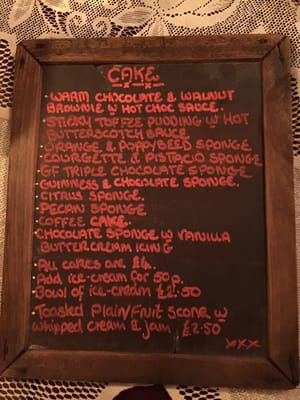 CAKE
· WARM CHOCOLATE & WALNUT
BROWNIE W HOT CHOC SAUCE.
· STICKY TOFFEE PUDDING W HOT
BUTTERSCOTCH SAUCE
· ORANGE & POPPYSEED SPONGE
· COURGETTE & PISTACIO SPONGE
· GF TRIPLE CHOCOLATE SPONGE
· GUINNESS & CHOCOLATE SPONGE.
· CITRUS SPONGE.
· PECAN SPONGE
· COFFEE CAKE.
· CHOCOLATE SPONGE W VANILLA
BUTTERCREAM ICING
· All cakes are £4.
· Add ice-cream for 50p.
· Bowl of ice-cream £2.50
· Toasted Plain/Fruit Scone W
whipped cream & jam £2.50
xxx